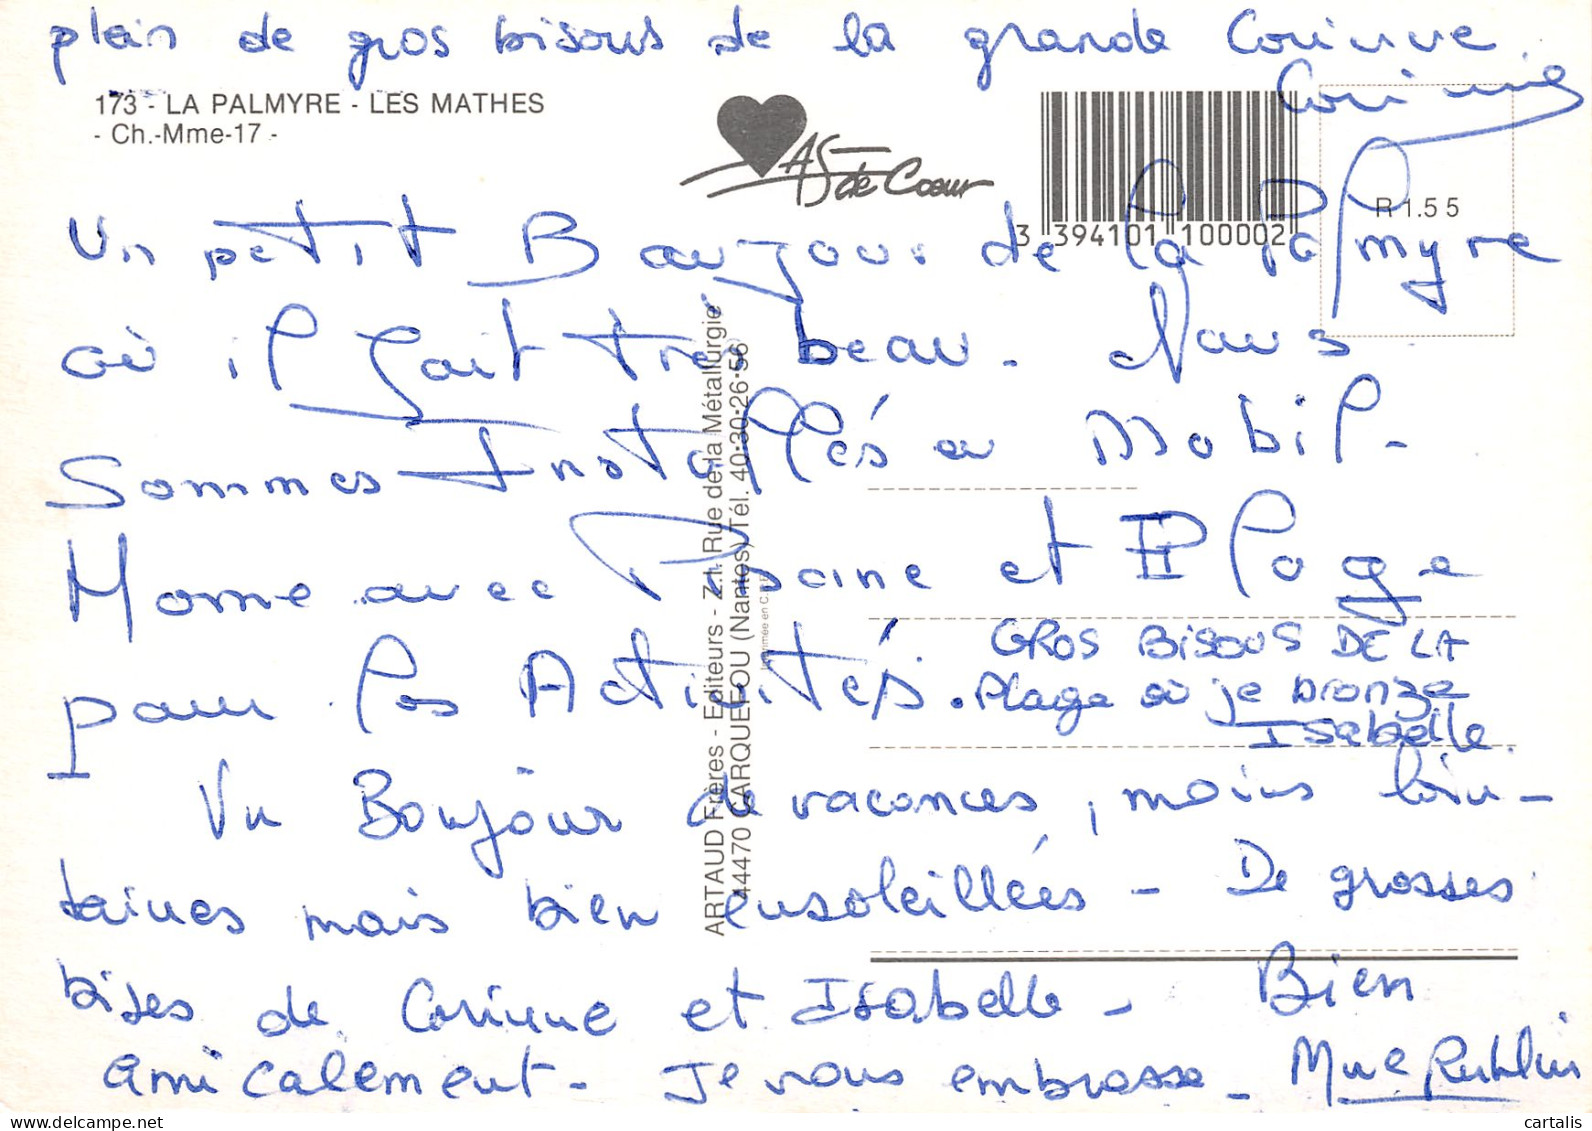 plein de gros bisous de la grande Corinne.
Corinne
173 - LA PALMYRE - LES MATHES
- Ch.-Mme-17 -
AS de Cœur
3 394101 100002
R 1.55
Un petit Bonjour de la Palmyre
où il fait très beau. Nous
Sommes Installés au Mobil-
Home avec Piscine et Plage
pour les Activités.
GROS BISOUS DE LA
Plage où je bronze
Isabelle.
Un Bonjour de vacances, moins loin-
taines mais bien ensoleillées - De grosses
bises de Corinne et Isabelle - Bien
amicalement - Je vous embrasse - Mme
ARTAUD Frères - Editeurs - Z.I. Rue de la Métallurgie
44470 CARQUEFOU (Nantes) Tél. 40.30.26.56
Imprimée en C.E.E.
www.delcampe.net
cartalis